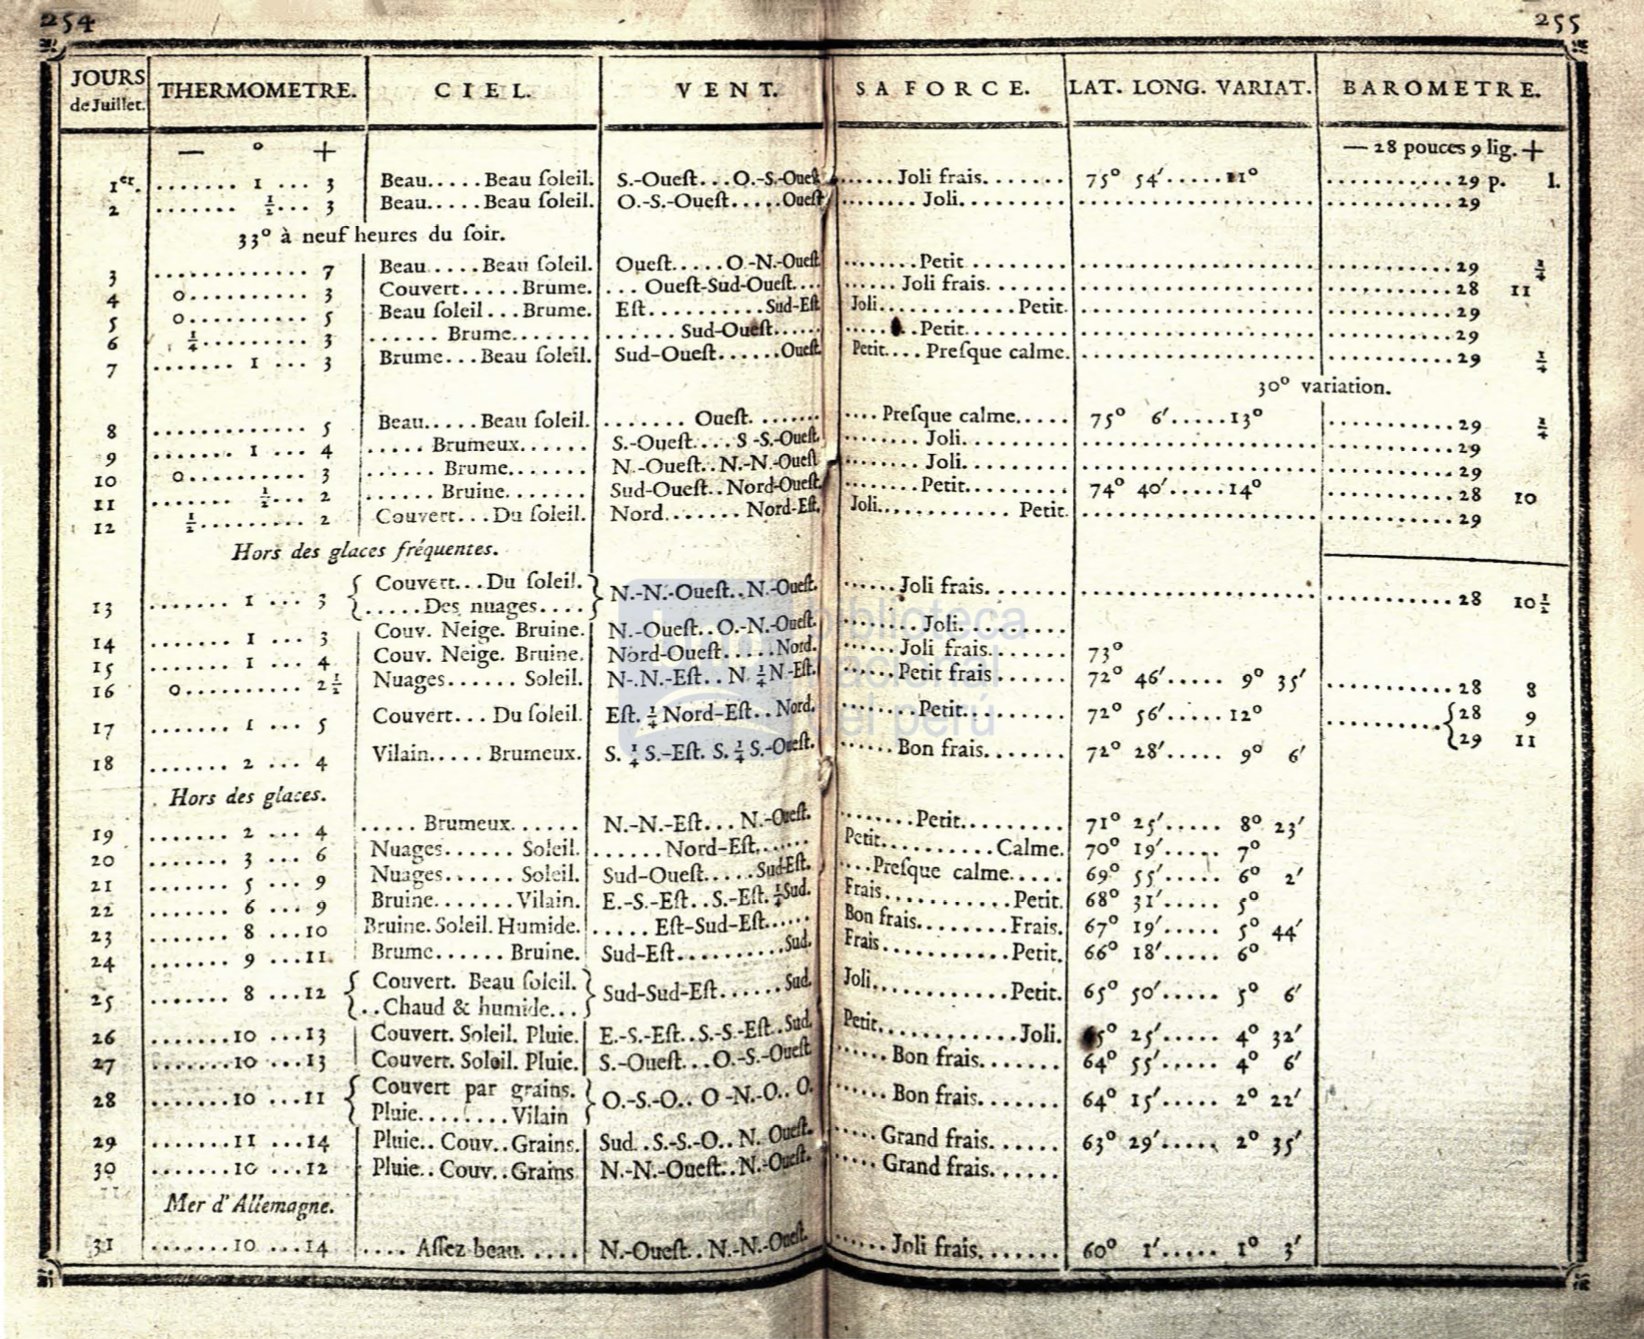 254
255
JOURS de Juillet. THERMOMETRE. CIEL. VENT. SA FORCE. LAT. LONG. VARIAT. BAROMETRE.
— ° + — 28 pouces 9 lig. +
1er. ....... 1 ... 3 Beau.....Beau ſoleil. S.-Oueſt...O.-S.-Oueſt ......Joli frais....... 75° 54′.....11° ...........29 p. 1.
2 ....... ½... 3 Beau.....Beau ſoleil. O.-S.-Oueſt.....Oueſt ........Joli......... ................... ...........29
33° à neuf heures du ſoir.
3 ............. 7 Beau.....Beau ſoleil. Oueſt.....O.-N.-Oueſt ........Petit......... ................... ...........29
4 o.......... 3 Couvert.....Brume. ...Oueſt-Sud-Oueſt.... ......Joli frais....... ................... ...........28 11
5 o.......... 5 Beau ſoleil...Brume. Eſt...........Sud-Eſt Joli.............Petit. ................... ...........29
6 ¼......... 3 ......Brume....... ......Sud-Oueſt..... ......Petit......... ................... ...........29
7 ....... 1 ... 3 Brume...Beau ſoleil. Sud-Oueſt......Oueſt. Petit....Preſque calme. ................... ...........29 ¼
30° variation.
8 ............. 5 Beau.....Beau ſoleil. .......Oueſt........ ....Preſque calme..... 75° 6′.....13° ...........29
9 ....... 1 ... 4 .....Brumeux...... S.-Oueſt....S.-S.-Oueſt. ........Joli......... ................... ...........29
10 o.......... 3 ......Brume....... N.-Oueſt..N.-N.-Oueſt ........Joli......... ................... ...........29
11 ....... ½... 2 ......Bruine....... Sud-Oueſt..Nord-Oueſt. ........Petit......... 74° 40′.....14° ...........28 10
12 ½......... 2 Couvert...Du ſoleil. Nord.......Nord-Eſt. Joli.............Petit. ................... ...........29
Hors des glaces fréquentes.
13 ....... 1 ... 3 { Couvert...Du ſoleil. } N.-N.-Oueſt..N.-Oueſt. ......Joli frais....... ................... ...........28 10½
{.....Des nuages....}
14 ....... 1 ... 3 Couv. Neige. Bruine. N.-Oueſt..O.-N.-Oueſt. ........Joli.........
15 ....... 1 ... 4 Couv. Neige. Bruine. Nord-Oueſt.....Nord. ......Joli frais....... 73°
16 o.......... 2½ Nuages......Soleil. N-.N.-Eſt..N.¼N-Eſt. ......Petit frais...... 72° 46′..... 9° 35′ ...........28 8
17 ....... 1 ... 5 Couvert...Du ſoleil. Eſt.¼Nord-Eſt..Nord. ........Petit......... 72° 56′.....12° ..........{28 9
{29 11
18 ....... 2 ... 4 Vilain.....Brumeux. S.¼S.-Eſt. S.¼S.-Oueſt. ......Bon frais....... 72° 28′..... 9° 6′
Hors des glaces.
19 ....... 2 ... 4 .....Brumeux...... N.-N.-Eſt...N.-Oueſt. ........Petit......... 71° 25′..... 8° 23′
20 ....... 3 ... 6 Nuages......Soleil. ......Nord-Eſt...... Petit...........Calme. 70° 19′..... 7°
21 ....... 5 ... 9 Nuages......Soleil. Sud-Oueſt.....Sud-Eſt. ....Preſque calme.... 69° 55′..... 6° 2′
22 ....... 6 ... 9 Bruine.......Vilain. E.-S.-Eſt..S.-Eſt.¼Sud. Frais............Petit. 68° 31′..... 5°
23 ....... 8 ...10 Bruine. Soleil. Humide. .....Eſt-Sud-Eſt..... Bon frais.........Frais. 67° 19′..... 5° 44′
24 ....... 9 ...11 Brume......Bruine. Sud-Eſt..........Sud. Frais............Petit. 66° 18′..... 6°
25 ....... 8 ...12 { Couvert. Beau ſoleil. } Sud-Sud-Eſt......Sud. Joli.............Petit. 65° 50′..... 5° 6′
{..Chaud & humide...}
26 .......10 ...13 Couvert. Soleil. Pluie. E.-S.-Eſt..S.-S-Eſt..Sud. Petit.............Joli. 5° 25′..... 4° 32′
27 .......10 ...13 Couvert. Soleil. Pluie. S.-Oueſt...O.-S.-Oueſt ......Bon frais....... 64° 55′..... 4° 6′
28 .......10 ...11 { Couvert par grains. } O.-S.-O..O-N.-O..O. ......Bon frais....... 64° 15′..... 2° 22′
Pluie........Vilain
29 .......11 ...14 Pluie..Couv..Grains. Sud..S.-S.-O..N.Oueſt. .....Grand frais...... 63° 29′..... 2° 35′
30 .......10 ...12 Pluie..Couv..Grains N.-N.-Oueſt..N.-Oueſt. .....Grand frais......
Mer d'Allemagne.
31 .......10 ...14 ....Aſſez beau..... N.-Oueſt..N.-N.-Oueſt. ......Joli frais....... 60° 1′..... 1° 3′
biblioteca
nacional
del perú